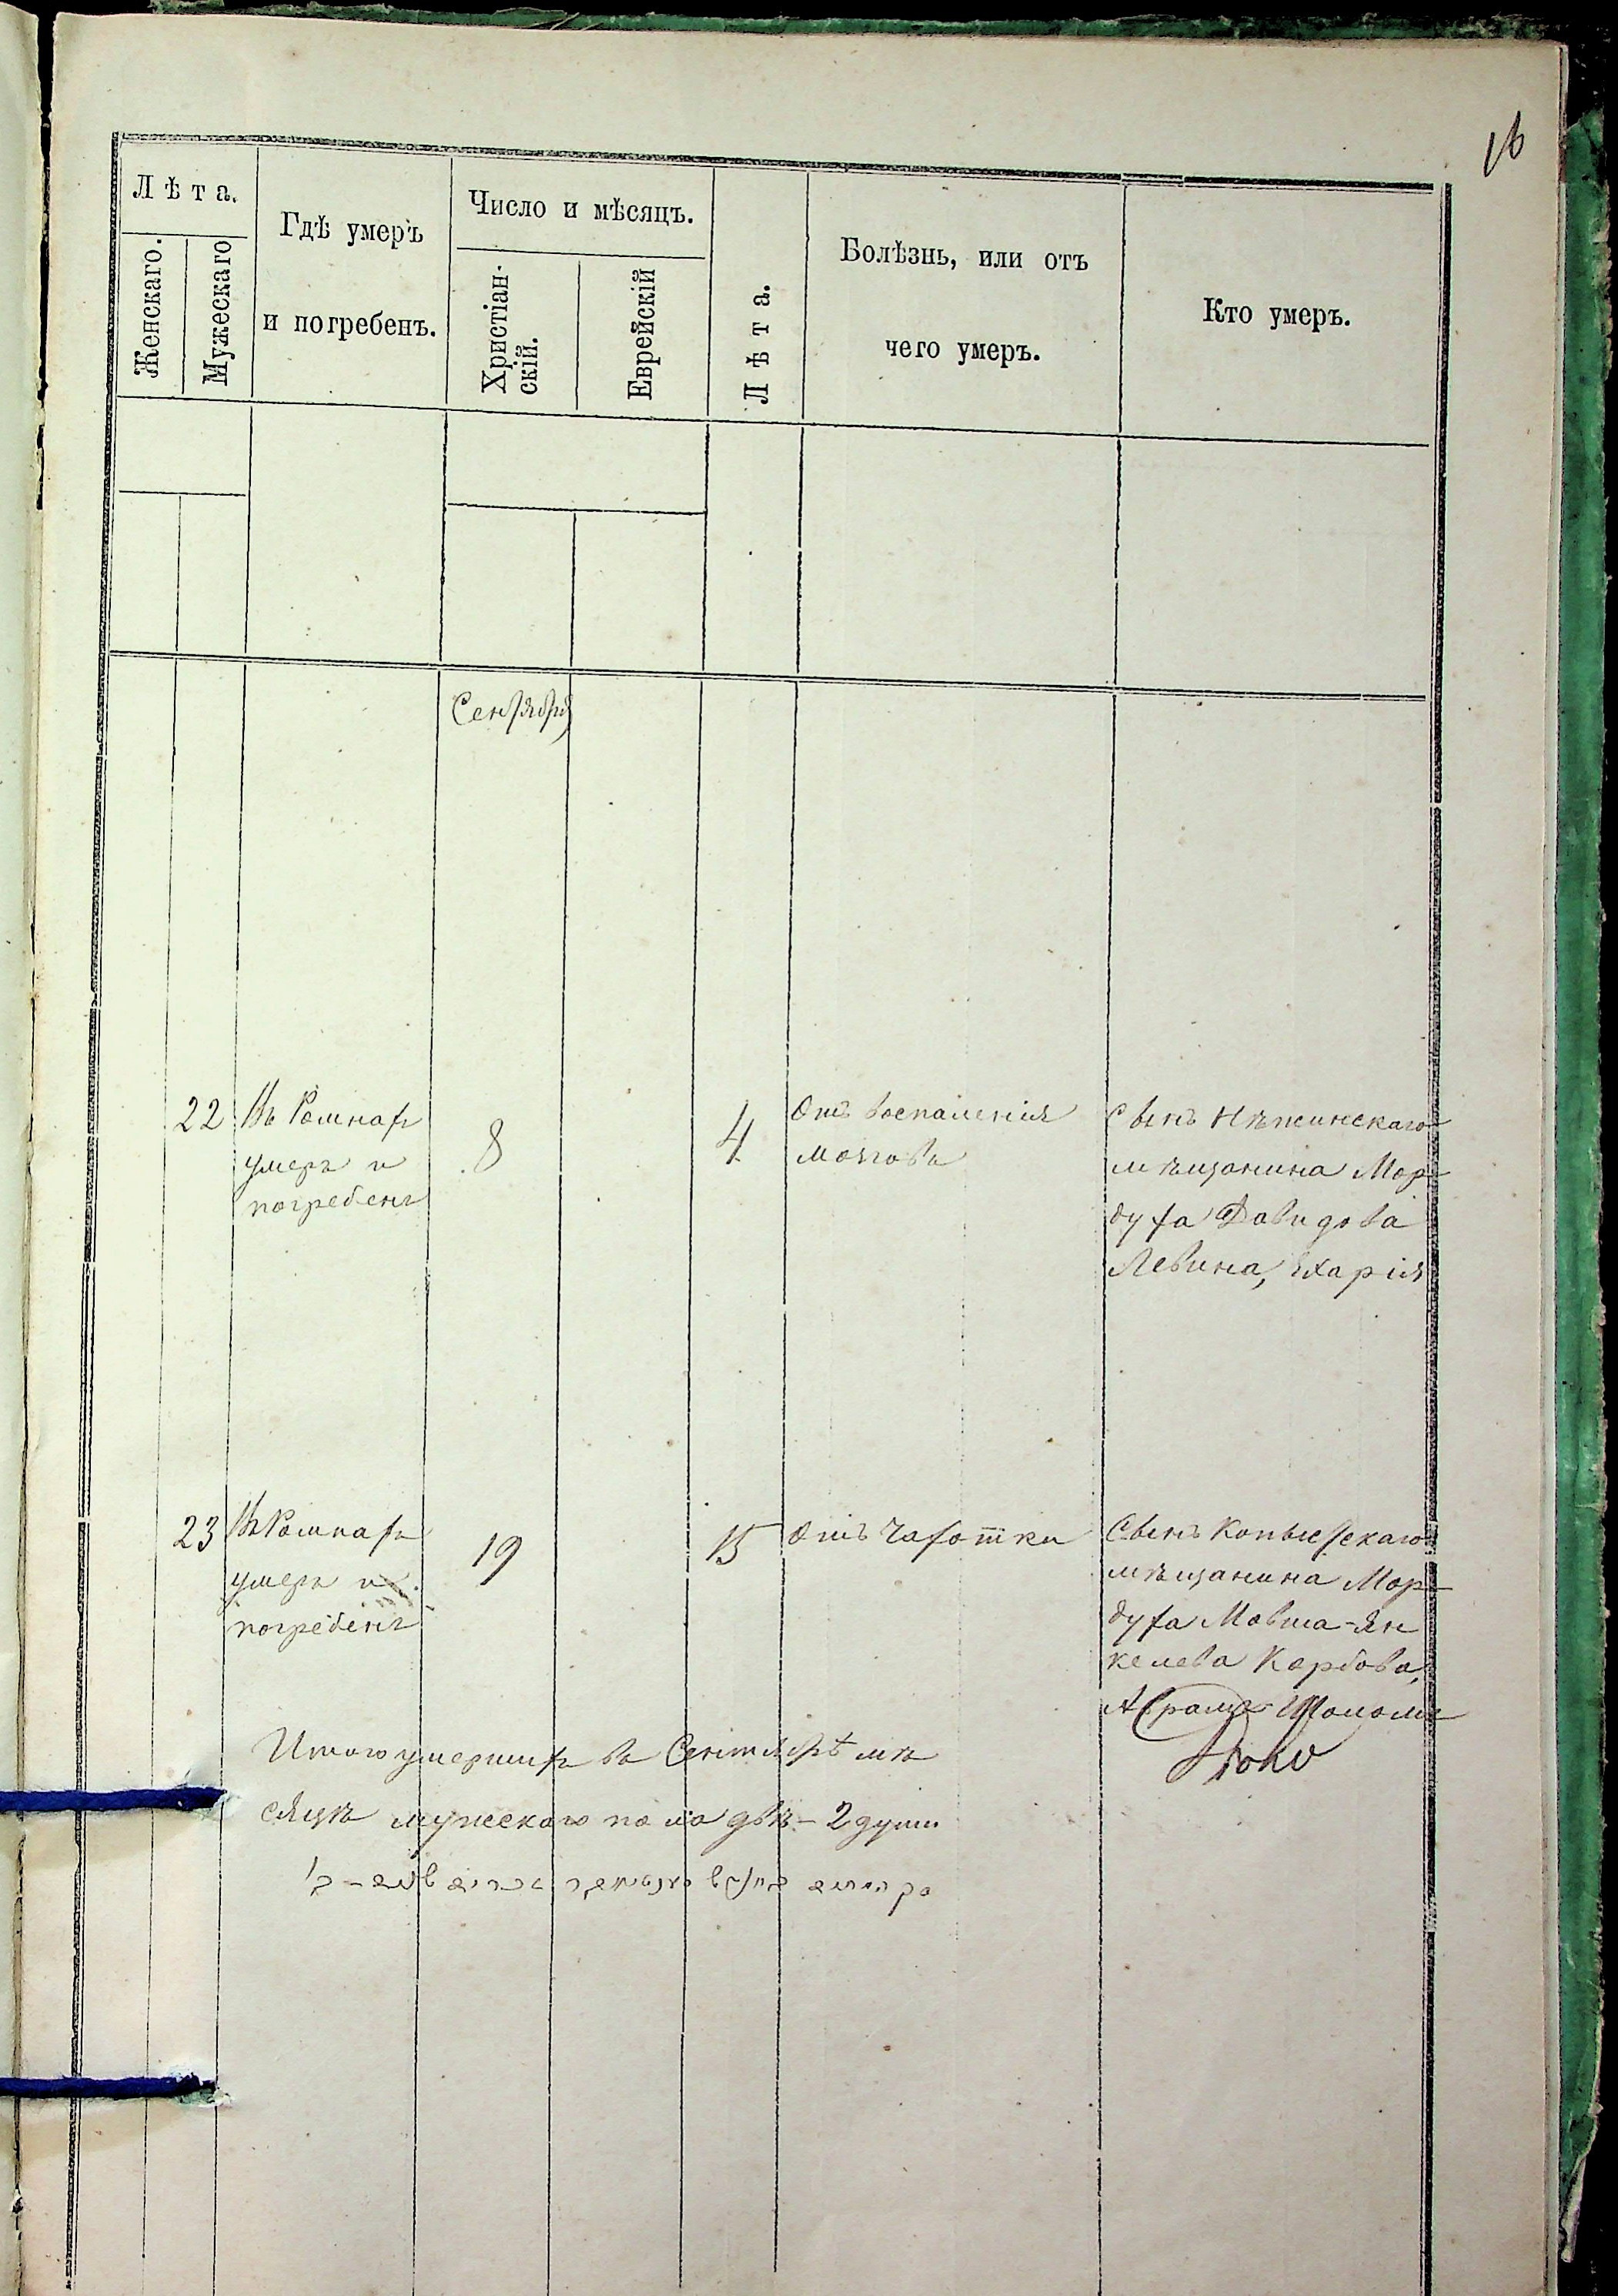 16
Лѣта.
Женскаго.
Мужескаго
Гдѣ умеръ
и погребенъ.
Число и мѣсяцъ.
Христіан-
скій.
Еврейскій
Лѣта.
Болѣзнь, или отъ
чего умеръ.
Кто умеръ.
Сентября
22
Въ Ромнахъ
умеръ и
погребенъ
8
4
Отъ воспаленія
мозговъ
Сынъ Нѣжинскаго
мѣщанина Мор-
духа Давидова
Левина,
23
Въ Ромнахъ
умеръ и
погребенъ
19
15
Отъ чахотки
Сынъ Копысскаго
мѣщанина Мор-
духа Мовша-Ян
келева
Абрамъ-
Итого умершихъ въ Сентябрѣ мѣ
сяцѣ мужескаго пола двѣ - 2 души